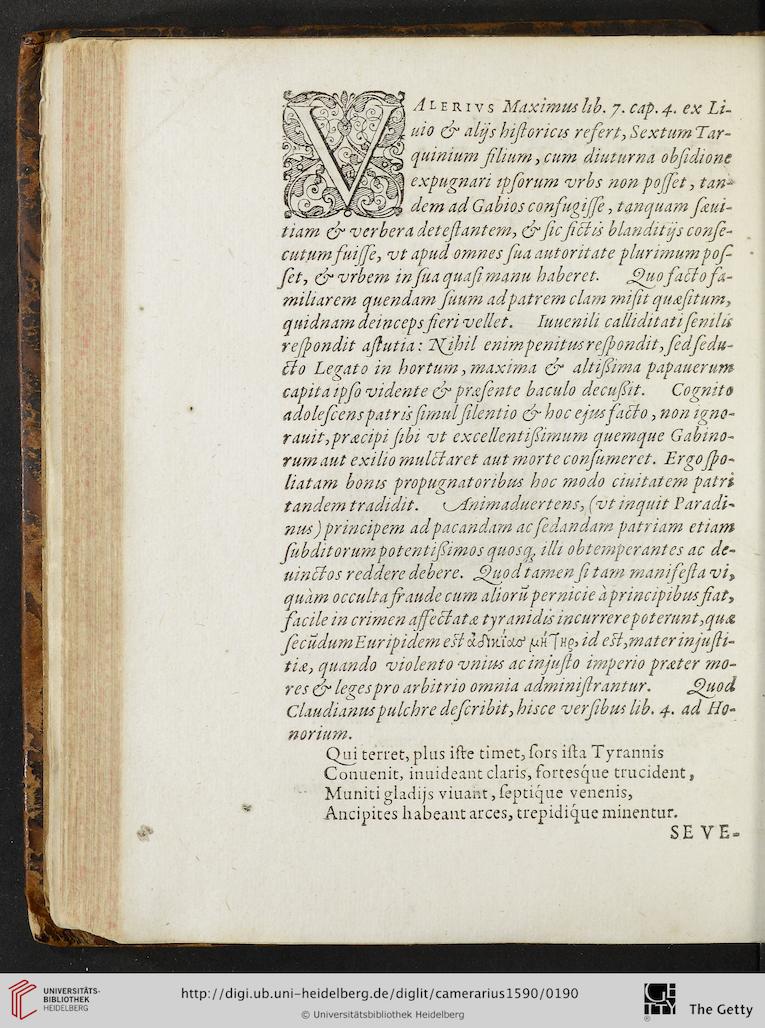 VALERIVS Maximus lib. 7. cap. 4. ex Li-
uio & alijs hiſtoricis refert, Sextum Tar-
quinium filium, cum diuturna obſidione
expugnari ipſorum vrbs non poſſet, tan-
dem ad Gabios confugiſſe, tanquam ſæui-
tiam & verbera deteſtantem, & ſic fictis blanditijs conſe-
cutum fuiſſe, vt apud omnes ſua autoritate plurimum poſ-
ſet, & vrbem in ſua quaſi manu haberet. Quo facto fa-
miliarem quendam ſuum ad patrem clam miſit quæſitum,
quidnam deinceps fieri vellet. Iuuenili calliditati ſenilis
reſpondit aſtutia: Nihil enim penitus reſpondit, ſed ſedu-
cto Legato in hortum, maxima & altißima papauerum
capita ipſo vidente & præſente baculo decußit. Cognito
adoleſcens patris ſimul ſilentio & hoc ejus facto, non igno-
rauit, præcipi ſibi vt excellentißimum quemque Gabino-
rum aut exilio mulctaret aut morte conſumeret. Ergo ſpo-
liatam bonis propugnatoribus hoc modo ciuitatem patri
tandem tradidit. Animaduertens, (vt inquit Paradi-
nus) principem ad pacandam ac ſedandam patriam etiam
ſubditorum potentißimos quosq; illi obtemperantes ac de-
uinctos reddere debere. Quod tamen ſi tam manifeſta vi,
quàm occulta fraude cum aliorū pernicie à principibus fiat,
facile in crimen affectatæ tyranidis incurrere poterunt, quæ
ſecūdum Euripidem eſt ἀδικίας μήτηρ, id eſt, mater injuſti-
tiæ, quando violento vnius ac injuſto imperio præter mo-
res & leges pro arbitrio omnia adminiſtrantur. Quod
Claudianus pulchre deſcribit, hisce verſibus lib. 4. ad Ho-
norium.
Qui terret, plus iſte timet, ſors iſta Tyrannis
Conuenit, inuideant claris, fortesque trucident,
Muniti gladijs viuant, ſeptique venenis,
Ancipites habeant arces, trepidique minentur.
SEVE-
UNIVERSITÄTS-
BIBLIOTHEK
HEIDELBERG
http://digi.ub.uni-heidelberg.de/diglit/camerarius1590/0190
© Universitätsbibliothek Heidelberg
The Getty